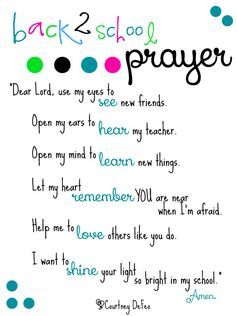 back 2 school
prayer
"Dear Lord, use my eyes to
see new friends.
Open my ears to
hear my teacher.
Open my mind to
learn new things.
Let my heart
remember YOU are near
when I'm afraid.
Help me to
love others like you do.
I want to
shine your light
so bright in my school."
Amen.
©Courtney DeFeo